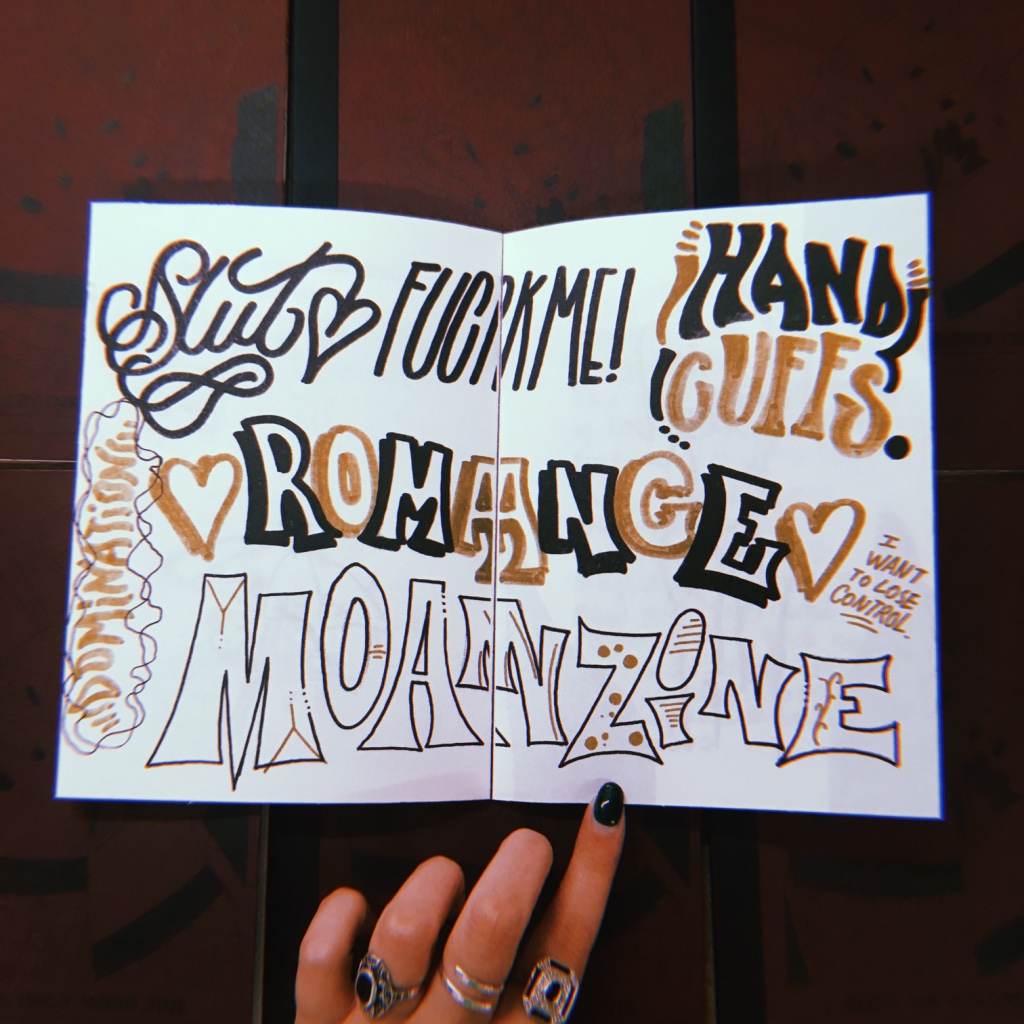 Slut
FUCK ME!
HAND
CUFFS.
DOMINATION
ROMANCE
I
WANT
TO LOSE
CONTROL.
MOANZINE